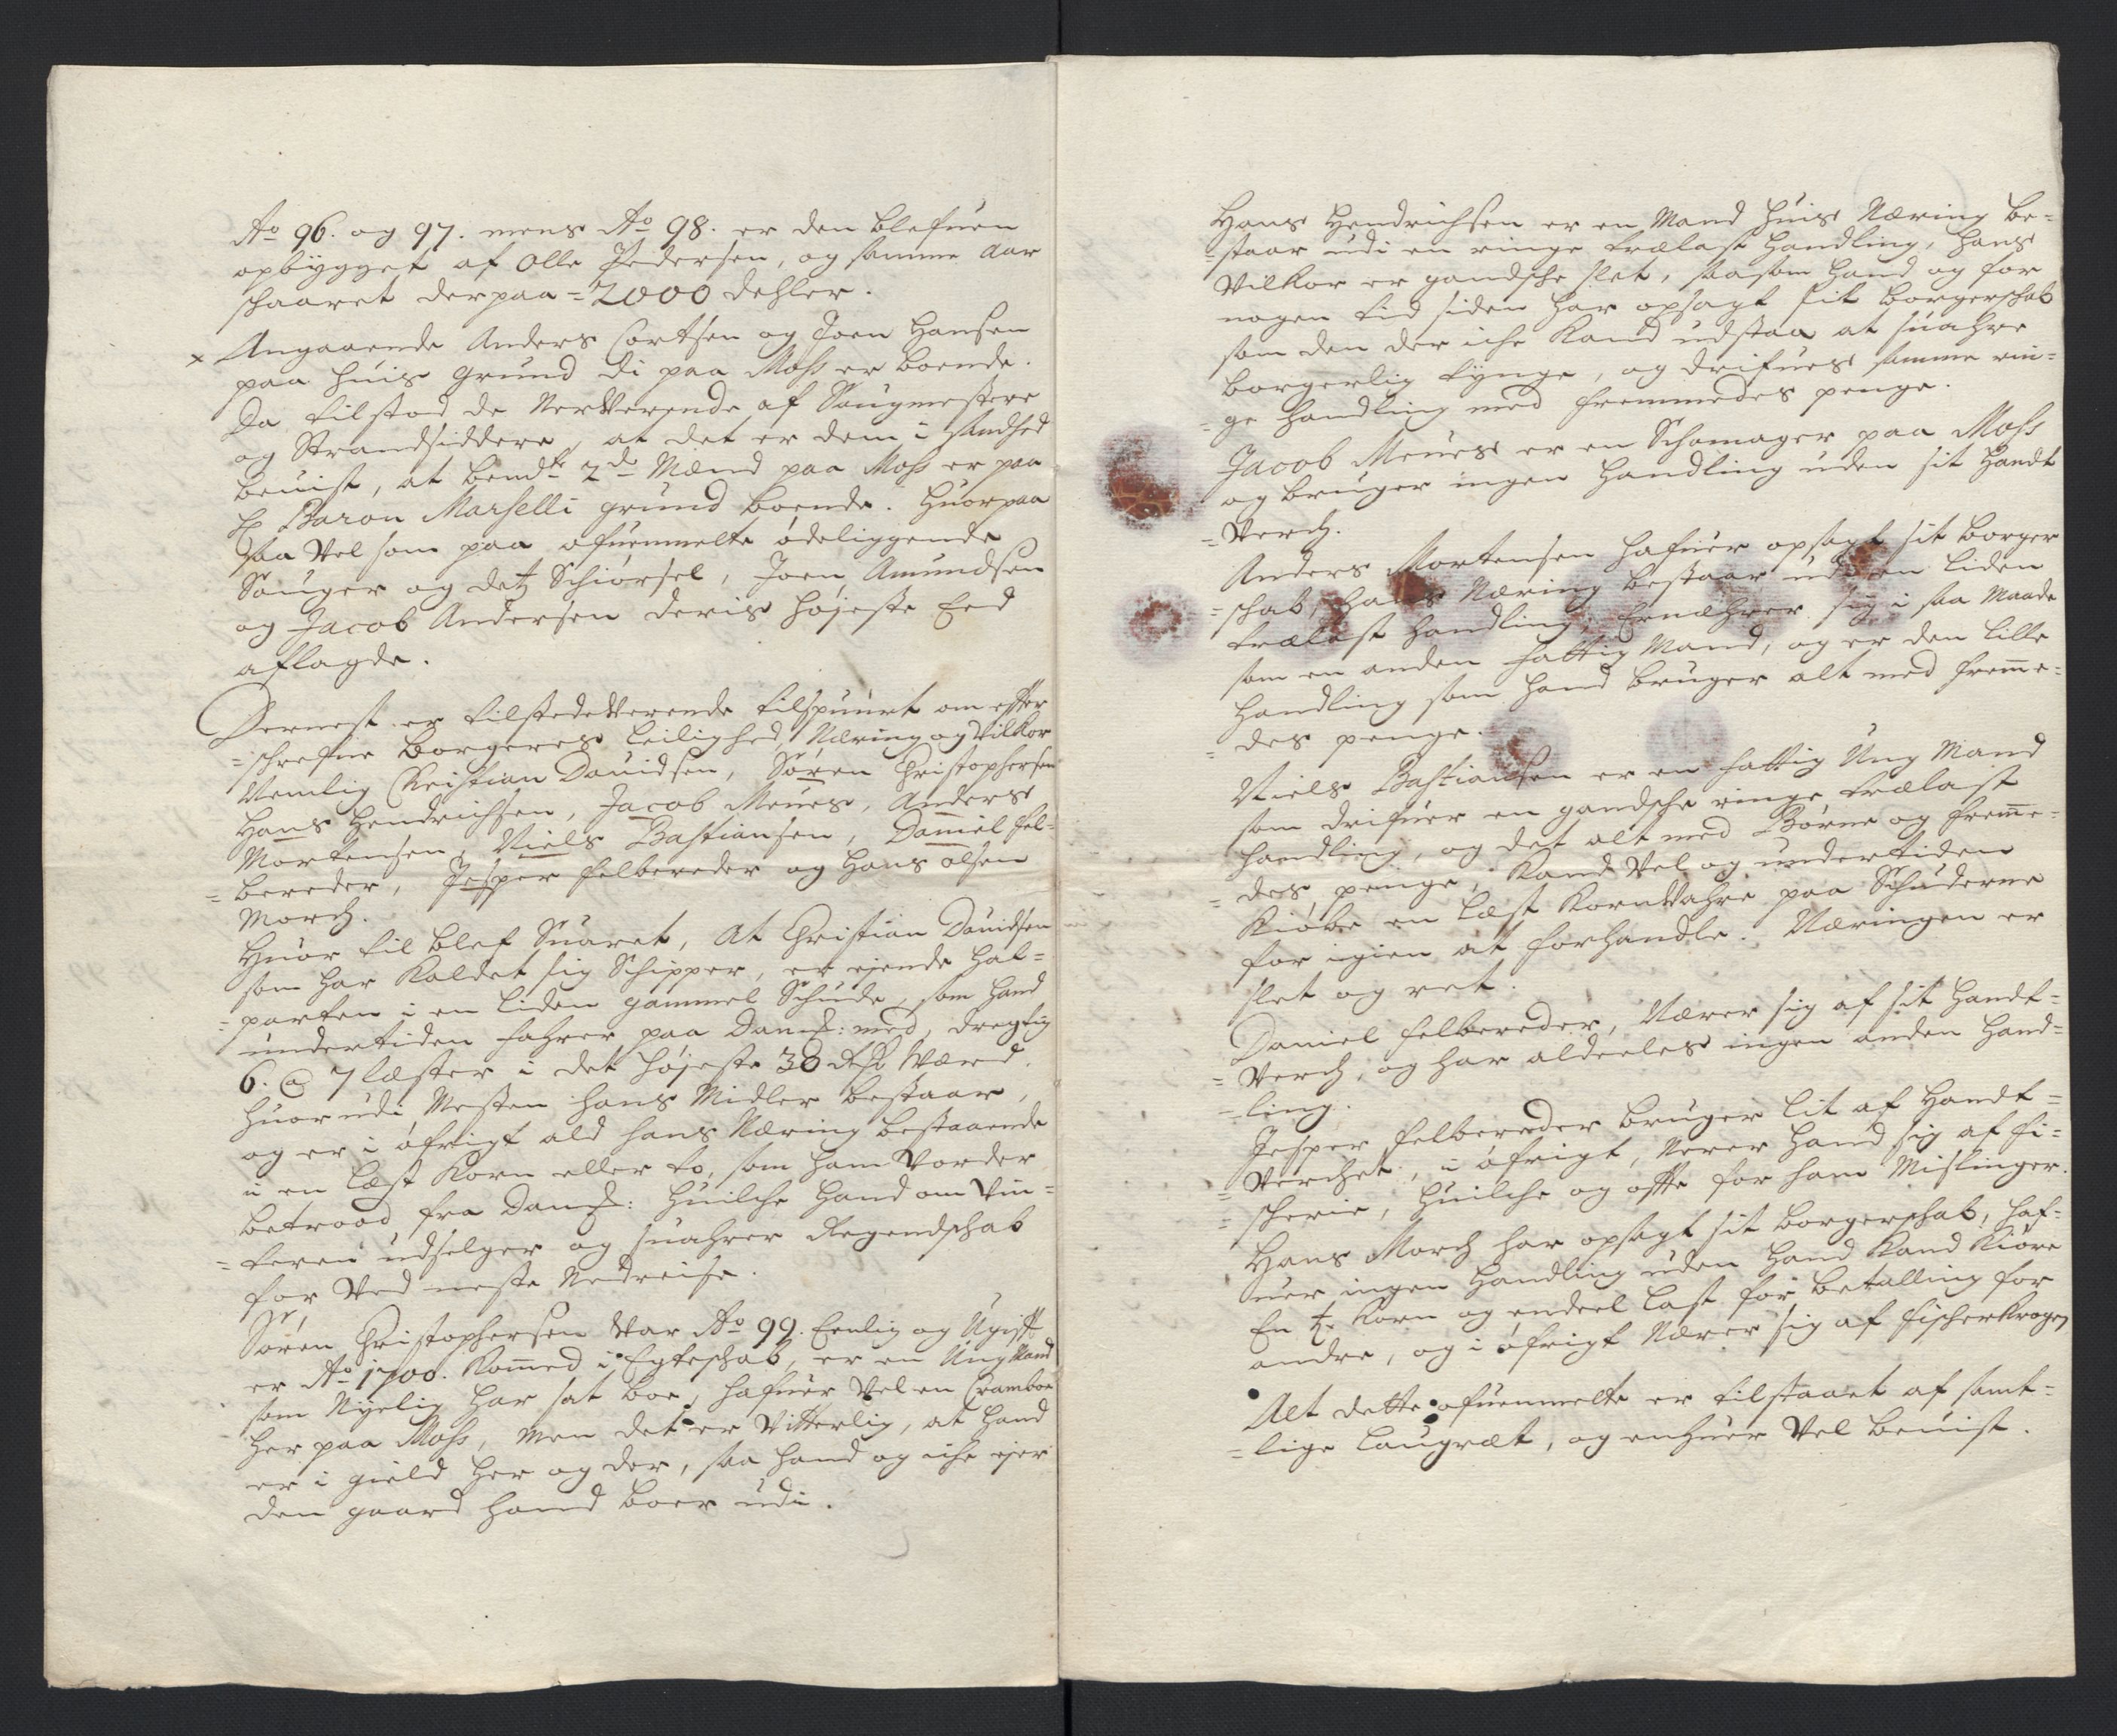 Ao 96. og 97. mens Ao 98. er den blefuen
opbygget af Olle Pedersen, og samme aar
skaaret derpaa = 2000 dehler.
x Angaaende Anders Cortsen og Joen Hansen
paa huis grund di paa Moss er boende.
Da tilstod de Nerverende af Saugmestere
og Strandsiddere, at det er dem i sandhed
beuist, at bemdte 2de Mænd paa Moss er paa
H Baron Marselli grund boende. Huorpaa
saa Vel som paa ofuenmelte ødeliggende
Sauger og detz Schiørsel, Joen Amundsen
og Jacob Andersen deris højeste Eed
aflagde.
Dernest er tilstedeverende tilspuurt om effter
= schrefne borgeres leilighed, Næring og Vilkor
Nemlig Christian Dauidsen, Søren Christophersen
Hans Hendrichsen, Jacob Meues, Anders
Mortensen, Niels Bastiansen, Daniel fel=
= bereder, Jesper felbereder og Hans olsen
Morch.
Huor til blef Suaret, At Christian Dauidsen
som har kaldet sig Schipper, er ejende hal=
= parten i en liden gammel Schude, som hand
undertiden fahrer paa Danf: med, dregtig
6. a 7 læster i det højeste 30 Rdr Værd.
huor udi Nesten hans Midler bestaar,
og er i øfrigt ald hans Næring bestaaende
i en Læst Korn eller to, som ham Vorder
betroed fra Danf: huilche hand om Vin=
= teren udselger og suahrer Regendschab
for Ved neste Nedreise.
Sr,
Søren Christophersen Var Ao 99. Eenlig og Ugift
er Ao 1700. kommed i Egteschab, er en Ung Mand
som Nyelig har sat boe, hafuer Vel en Cramboe
her paa Moss, men det er Vitterlig, at hand
er i gield her og der, saa hand og iche ejer
den gaard hand boer udi.
Hans Hendrichsen er en Mand huis Næring be=
= staar udi en ringe trælast handling, hans
Vilkor er gandsche slet, saasom hand og for
nogen tid siden har opsagt sit borgerschab
som den der iche kand udstaa at suahre
borgerlig tynge, og drifues samme rin=
= ge handling med fremmedes penge.
Jacob Meues er en Schomager paa Moss
og bruger ingen handling uden sit handt
= Verch.
Anders Mortensen hafuer opsagt sit borger
= schab, hans Næring bestaar udi en liden
trælast handling, Ernæhrer sig i saa maade
som en anden fattig Mand, og er den lille
handling som hand bruger alt med fremme=
= des penge.
Niels Bastiansen er en fattig Ung Mand
som drifuer en gandsche ringe trælast
handling, og det alt med Børne og fremme=
= des penge, kand Vel og undertiden
kiøbe en Læst kornVahre paa Schuderne
for igien at forhandle. Næringen er
slet og ret.
Daniel felbereder, Nærer sig af sit handt=
= Verch, og har aldeeles ingen anden hand=
= ling.
Jesper felbereder bruger lit af handt=
= Verchet, i øfrigt, Nerer hand sig af fi=
= scherie, huilche og offte for ham Mislinger.
Hans Morch har opsagt sit borgerschab, haf=
uer ingen handling uden hand kand kiøre
En t. korn og endeel last for betalling for
andre, og i øfrigt Nærer sig af fischerkrogen
Alt dette ofuenmelte er tilstaaet af samt=
= lige laugræt, og enhuer Vel beuist.